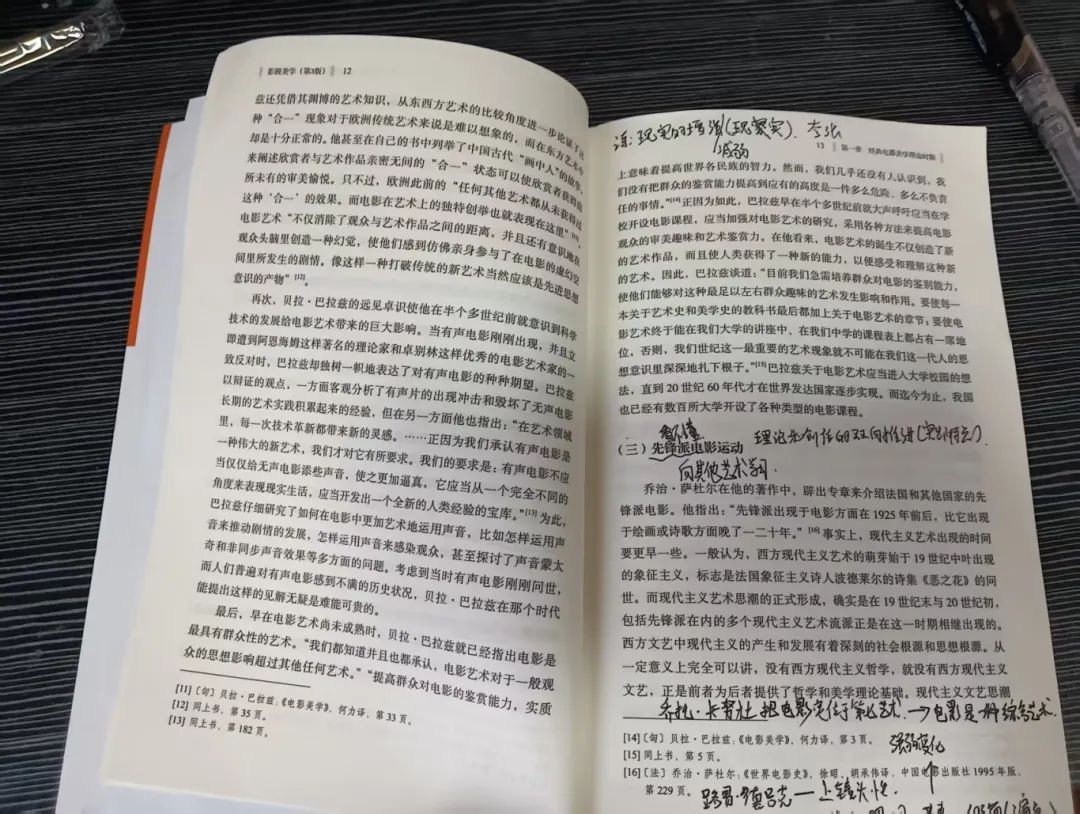 影视美学（第3版） 12
兹还凭借其渊博的艺术知识，从东西方艺术的比较角度进一步论证了这
种“合一”现象对于欧洲传统艺术来说是难以想象的，而在东方艺术中
却是十分正常的。他甚至在自己的书中列举了中国古代“画中人”的故事，
来阐述欣赏者与艺术作品亲密无间的“合一”状态可以使欣赏者获得前
所未有的审美愉悦。只不过，欧洲此前的“任何其他艺术都从未获得过
这种‘合一’的效果。而电影在艺术上的独特创举也就表现在这里”
电影艺术“不仅消除了观众与艺术作品之间的距离，并且还有意识地在
观众头脑里创造一种幻觉，使他们感到仿佛亲身参与了在电影的虚幻空
间里所发生的剧情。像这样一种打破传统的新艺术当然应该是先进思想
意识的产物”[12]。
再次，贝拉·巴拉兹的远见卓识使他在半个多世纪前就意识到科学
技术的发展给电影艺术带来的巨大影响。当有声电影刚刚出现，并且立
即遭到阿恩海姆这样著名的理论家和卓别林这样优秀的电影艺术家的一
致反对时，巴拉兹却独树一帜地表达了对有声电影的种种期望。巴拉兹
以辩证的观点，一方面客观分析了有声片的出现冲击和毁坏了无声电影
长期的艺术实践积累起来的经验，但在另一方面他也指出：“在艺术领域
里，每一次技术革新都带来新的灵感。……正因为我们承认有声电影是
一种伟大的新艺术，我们才对它有所要求。我们的要求是：有声电影不应
当仅仅给无声电影添些声音，使之更加逼真，它应当从一个完全不同的
角度来表现现实生活，应当开发出一个全新的人类经验的宝库。”[13]为此，
巴拉兹仔细研究了如何在电影中更加艺术地运用声音，比如怎样运用声
音来推动剧情的发展，怎样运用声音来感染观众，甚至探讨了声音蒙太
奇和非同步声音效果等多方面的问题。考虑到当时有声电影刚刚问世，
而人们普遍对有声电影感到不满的历史状况，贝拉·巴拉兹在那个时代
能提出这样的见解无疑是难能可贵的。
最后，早在电影艺术尚未成熟时，贝拉·巴拉兹就已经指出电影是
最具有群众性的艺术。“我们都知道并且也都承认，电影艺术对于一般观
众的思想影响超过其他任何艺术。”“提高群众对电影的鉴赏能力，实质
[11]〔匈〕贝拉·巴拉兹：《电影美学》，何力译，第 33 页。
[12] 同上书，第 35 页。
[13] 同上书，第 182 页。
现实的
减弱
13 第一章 经典电影美学理论时期
上意味着提高世界各民族的智力。然而，我们几乎还没有人认识到，我
们没有把群众的鉴赏能力提高到应有的高度是一件多么危险、多么不负责
任的事情。”[14]正因为如此，巴拉兹早在半个多世纪前就大声呼吁应当在学
校开设电影课程，应当加强对电影艺术的研究，采用各种方法来提高电影
观众的审美趣味和艺术鉴赏力。在他看来，电影艺术的诞生不仅创造了新
的艺术作品，而且使人类获得了一种新的能力，以便感受和理解这种新
的艺术。因此，巴拉兹谈道：“目前我们急需培养群众对电影的鉴别能力，
使他们能够对这种最足以左右群众趣味的艺术发生影响和作用。要使每一
本关于艺术史和美学史的教科书最后都加上关于电影艺术的章节；要使电
影艺术终于能在我们大学的讲座中、在我们中学的课程表上都占有一席地
位，否则，我们世纪这一最重要的艺术现象就不可能在我们这一代人的思
想意识里深深地扎下根子。”[15]巴拉兹关于电影艺术应当进入大学校园的想
法，直到 20 世纪 60 年代才在世界发达国家逐步实现。而迄今为止，我国
也已经有数百所大学开设了各种类型的电影课程。
看不懂 理论与创作的双向推进
（三）先锋派电影运动
向其他艺术学习.
乔治·萨杜尔在他的著作中，辟出专章来介绍法国和其他国家的先
锋派电影。他指出：“先锋派出现于电影方面在 1925 年前后，比它出现
于绘画或诗歌方面晚了一二十年。”[16] 事实上，现代主义艺术出现的时间
要更早一些。一般认为，西方现代主义艺术的萌芽始于 19 世纪中叶出现
的象征主义，标志是法国象征主义诗人波德莱尔的诗集《恶之花》的问
世。而现代主义艺术思潮的正式形成，确实是在 19 世纪末与 20 世纪初，
包括先锋派在内的多个现代主义艺术流派正是在这一时期相继出现的。
西方文艺中现代主义的产生和发展有着深刻的社会根源和思想根源。从
一定意义上完全可以讲，没有西方现代主义哲学，就没有西方现代主义
文艺，正是前者为后者提供了哲学和美学理论基础。现代主义文艺思潮
乔托·卡努杜把电影定位于第七艺术.→电影是一种综合艺术.
[14]〔匈〕贝拉·巴拉兹：《电影美学》，何力译，第 3 页。
强弱变化
[15] 同上书，第 5 页。
[16]〔法〕乔治·萨杜尔：《世界电影史》，徐昭、胡承伟译，中国电影出版社 1995 年版，
第 229 页。
路易·德吕克—上镜头性.